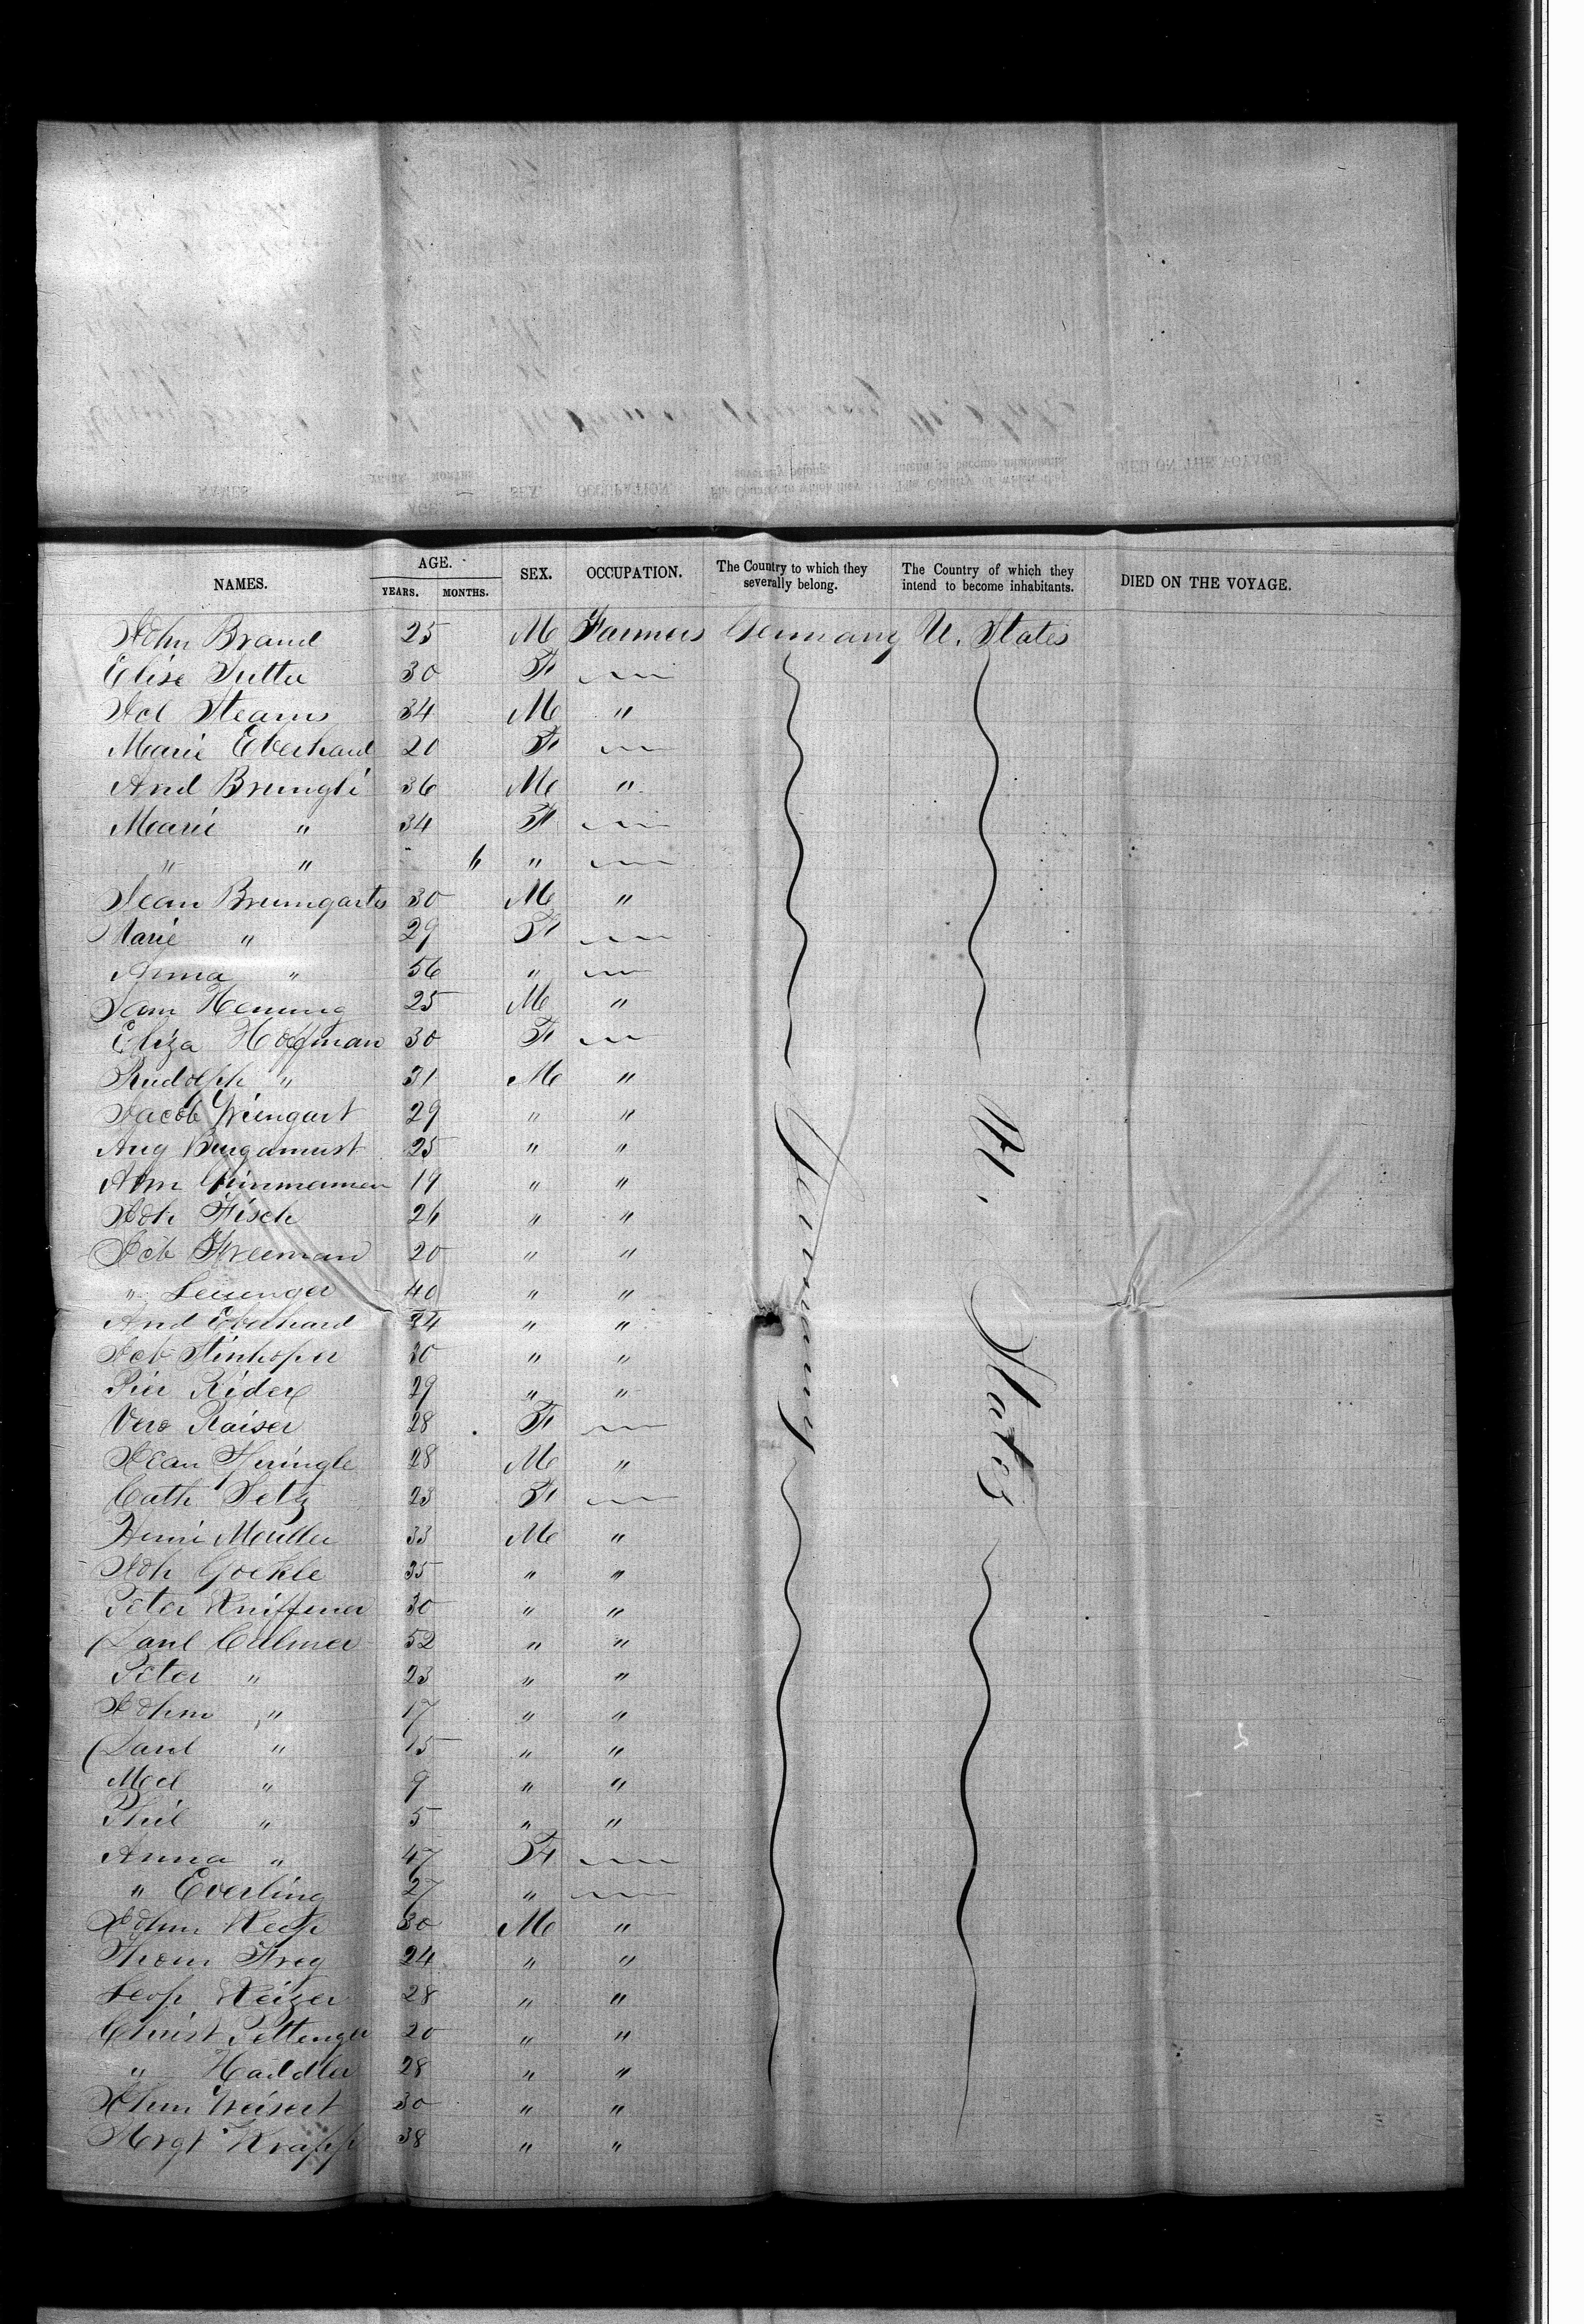 NAMES. AGE. YEARS. MONTHS. SEX. OCCUPATION. The Country to which they severally belong. The Country of which they intend to become inhabitants. DIED ON THE VOYAGE.
John Brand 25 M Farmers Germany U. States
Elise Sutter 30 F
Jcl Stearns 34 M "
Marie Eberhard 20 F
And Brungli 36 M "
Marie " 34 F
" " 6 "
Jean Brumgarts 30 M "
Marie " 29 F
Anna " 56 "
Sam Henning 25 M "
Eliza Hoffman 30 F
Rudolph " 31 M "
Jacob Wiengart 29 " "
Aug 25 " "
19 " "
Joh Fisch 26 " "
Jcb Freeman 20 " "
" Leuenger 40 " "
And Eberhard 24 " "
Jcb Stinhoper 30 " "
Pier Rider 29 " "
Vero Kaiser 28 F
Jean Heringle 28 M "
Cath Setz 23 F
Henri Meuder 33 M "
Joh Gockle 35 " "
Peter Kniffener 30 " "
Danl Culmer 52 " "
Peter " 23 " "
Johm " 17 " "
Danl " 15 " "
Mcl " 9 " "
Phil " 5 " "
Anna " 47 F
" Everling 27 "
John 30 M "
Thom Frey 24 " "
Leop Keizer 28 " "
Christ Pettenger 20 " "
" Haidler 28 " "
Weisert 30 " "
Krapp 38 " "
Germany U. States